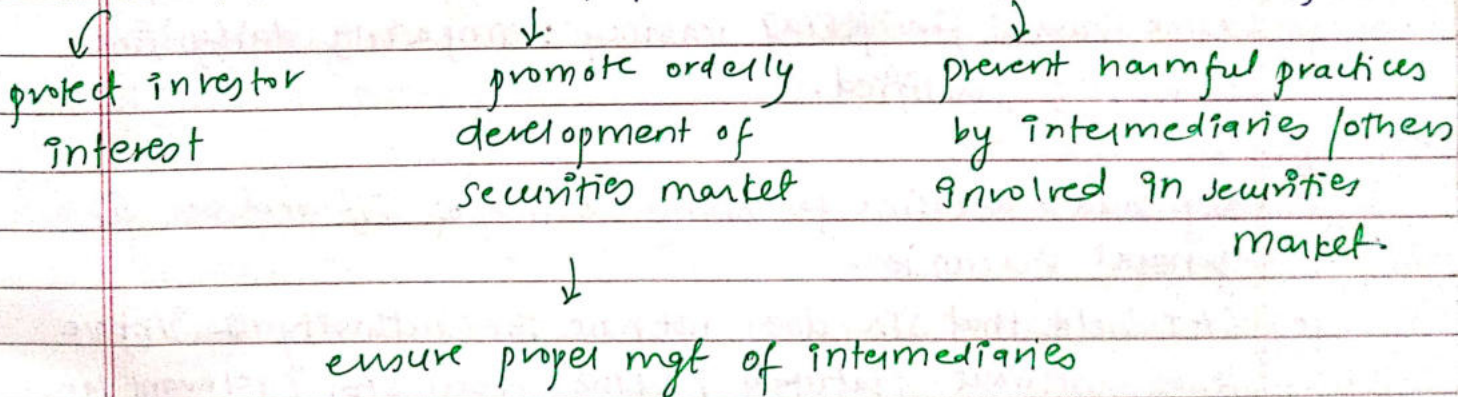 protect investor
interest
promote orderly
development of
securities market
prevent harmful practices
by intermediaries / others
involved in securities
market.
ensure proper mgt of intermediaries